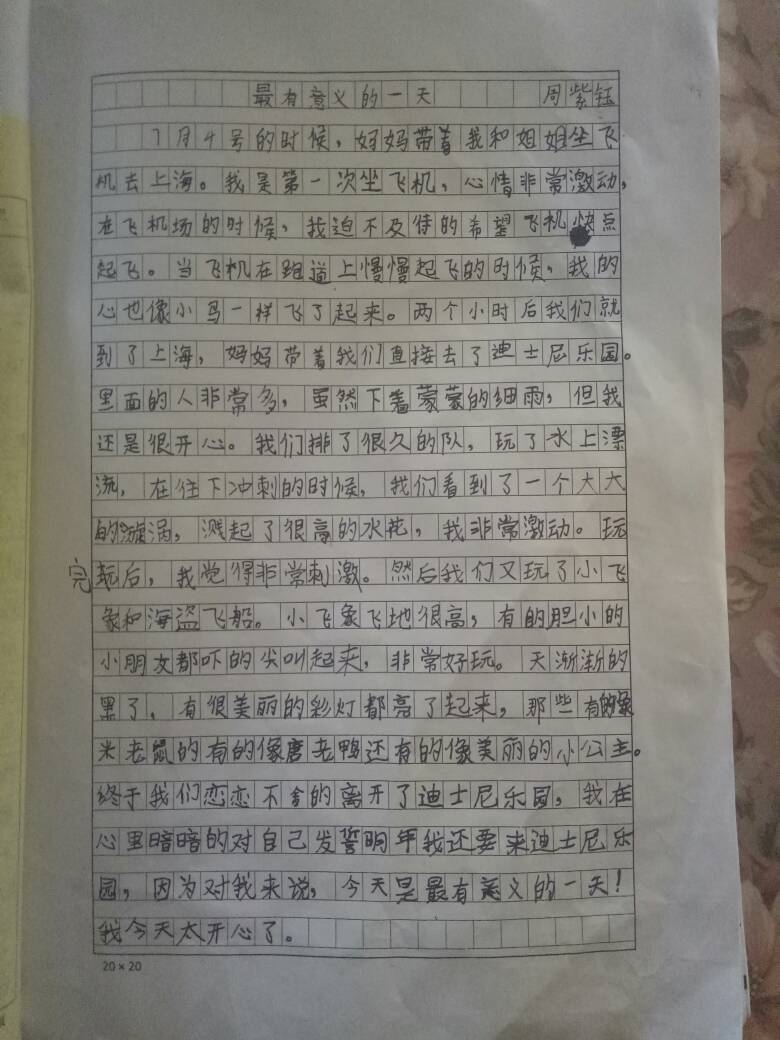 最有意义的一天 周紫钰
7月4号的时候，妈妈带着我和姐姐坐飞
机去上海。我是第一次坐飞机，心情非常激动，
在飞机场的时候，我迫不及待的希望飞机快点
起飞。当飞机在跑道上慢慢起飞的时候，我的
心也像小鸟一样飞了起来。两个小时后我们就
到了上海，妈妈带着我们直接去了迪士尼乐园。
里面的人非常多，虽然下着蒙蒙的细雨，但我
还是很开心。我们排了很久的队，玩了水上漂
流，在往下冲刺的时候，我们看到了一个大大
的漩涡，溅起了很高的水花，我非常激动。玩
完玩后，我觉得非常刺激。然后我们又玩了小飞
象和海盗飞船。小飞象飞地很高，有的胆小的
小朋友都吓的尖叫起来，非常好玩。天渐渐的
黑了，有很美丽的彩灯都亮了起来，那些有的象
米老鼠的有的像唐老鸭还有的像美丽的小公主。
终于我们恋恋不舍的离开了迪士尼乐园，我在
心里暗暗的对自己发誓明年我还要来迪士尼乐
园，因为对我来说，今天是最有意义的一天！
我今天太开心了。
20×20